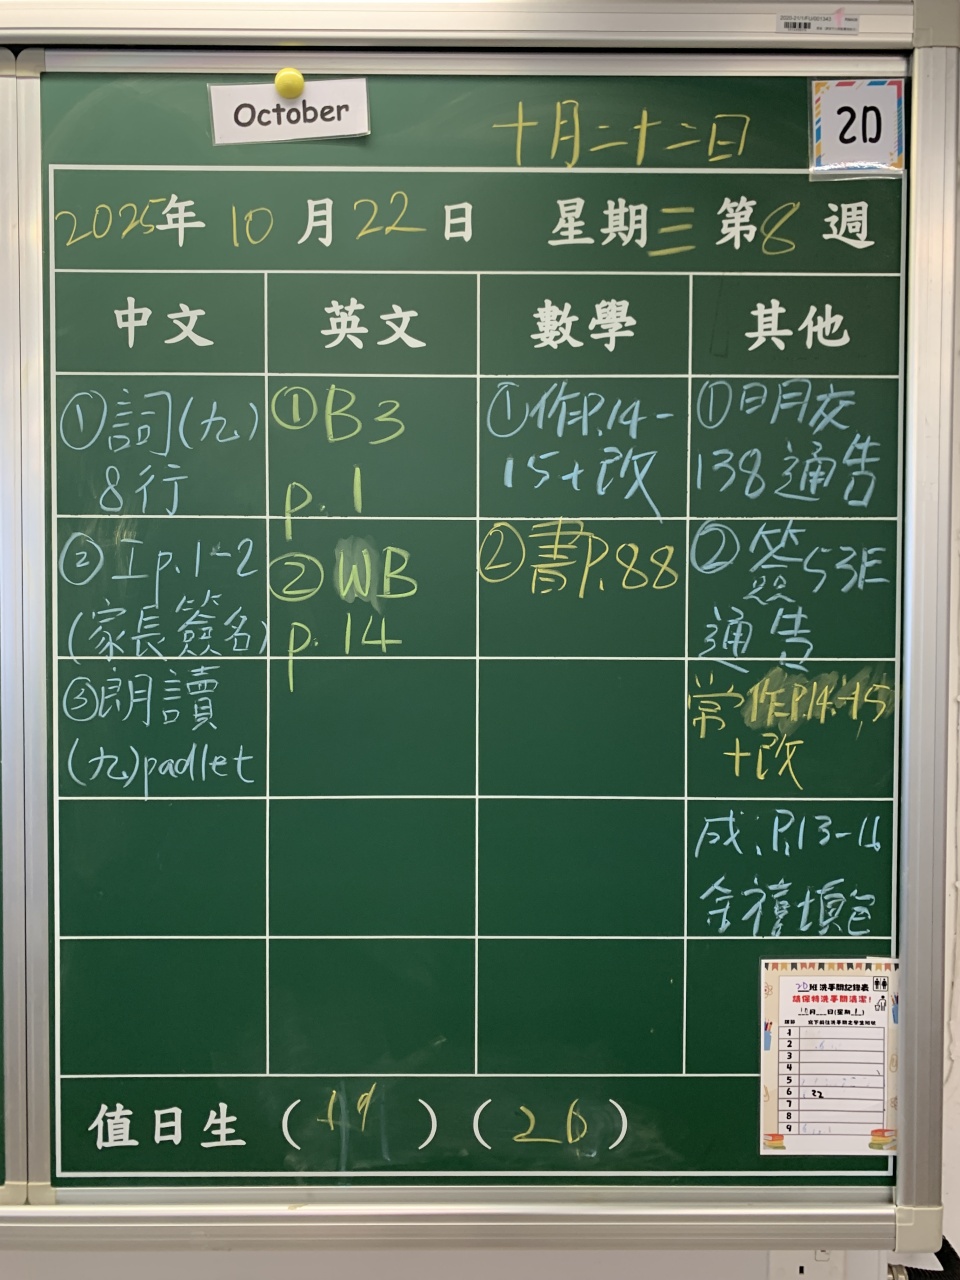 October
十月二十二日
2D
2025年 10月22日 星期三 第8週
中文 英文 數學 其他
①詞(九)
8行
①B3
p.1
①作P.14-
15+改
①日月交
138通告
②工p.1-2
(家長簽名)
②WB
p.14
②書P.88
②签53E
通告
③朗讀
(九)padlet
常作P.14-15
+改
成:P.13-16
全禧填色
值日生 (19)(20)
2D班洗手間記錄表
請保持洗手間清潔!
10月 日(星期1)
1
2
3
4
5
6 22
7
8
9